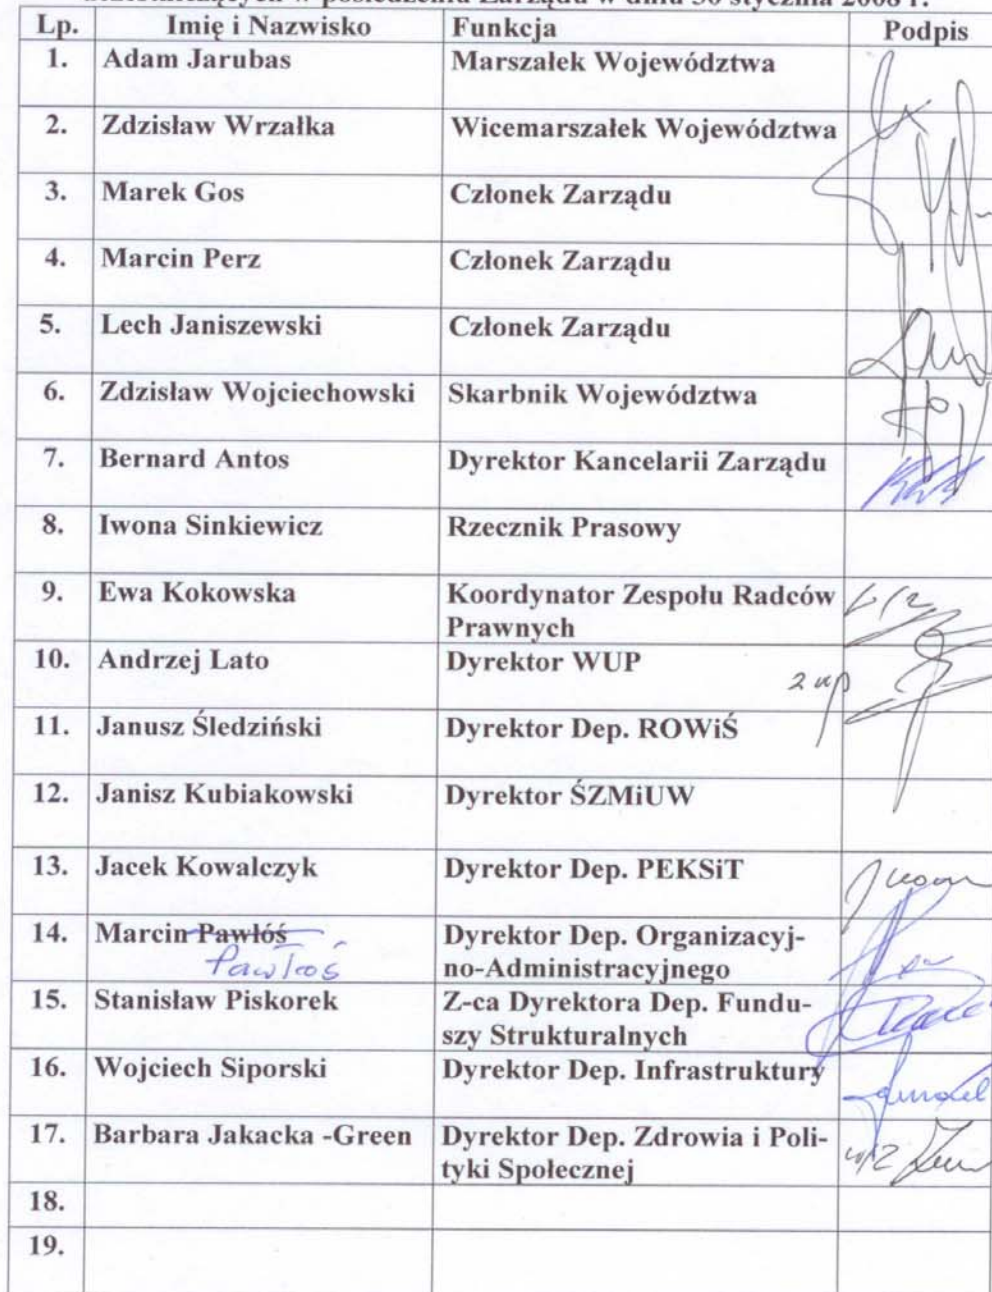 uczestniczących w posiedzeniu Zarządu w dniu 30 stycznia 2008 r.
Lp. Imię i Nazwisko Funkcja Podpis
1. Adam Jarubas Marszałek Województwa
2. Zdzisław Wrzałka Wicemarszałek Województwa
3. Marek Gos Członek Zarządu
4. Marcin Perz Członek Zarządu
5. Lech Janiszewski Członek Zarządu
6. Zdzisław Wojciechowski Skarbnik Województwa
7. Bernard Antos Dyrektor Kancelarii Zarządu
8. Iwona Sinkiewicz Rzecznik Prasowy
9. Ewa Kokowska Koordynator Zespołu Radców
Prawnych
10. Andrzej Lato Dyrektor WUP
11. Janusz Śledziński Dyrektor Dep. ROWiŚ
12. Janisz Kubiakowski Dyrektor ŚZMiUW
13. Jacek Kowalczyk Dyrektor Dep. PEKSiT
14. Marcin Pawłóś Dyrektor Dep. Organizacyj-
Pawłoś no-Administracyjnego
15. Stanisław Piskorek Z-ca Dyrektora Dep. Fundu-
szy Strukturalnych
16. Wojciech Siporski Dyrektor Dep. Infrastruktury
17. Barbara Jakacka -Green Dyrektor Dep. Zdrowia i Poli-
tyki Społecznej
18.
19.